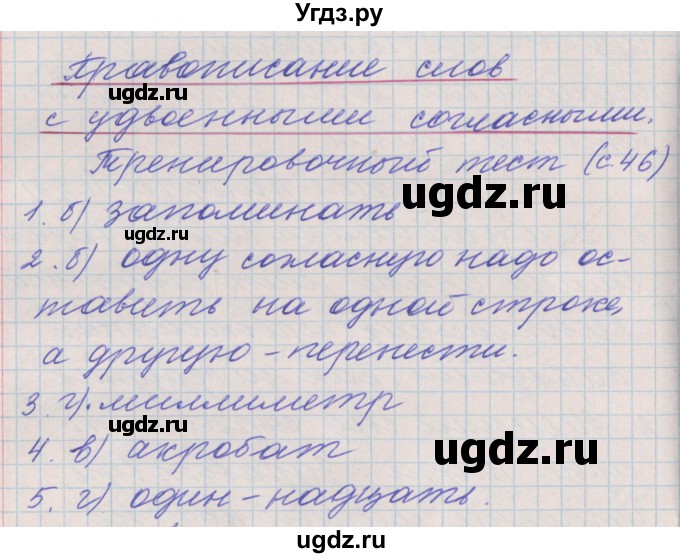 Угдз.ру
Правописание слов
ugdz.ru
с удвоенными согласными.
ugdz.ru
Тренировочный тест (с. 46)
1. б) запоминать
ugdz.ru
ugdz.ru
2. б) одну согласную надо ос-
ugdz.ru
тавить на одной строке,
а другую - перенести.
ugdz.ru
3. г). миллиметр
ugdz.ru
4. в) акробат
ugdz.ru
5. г) один - надцать.
ugdz.ru